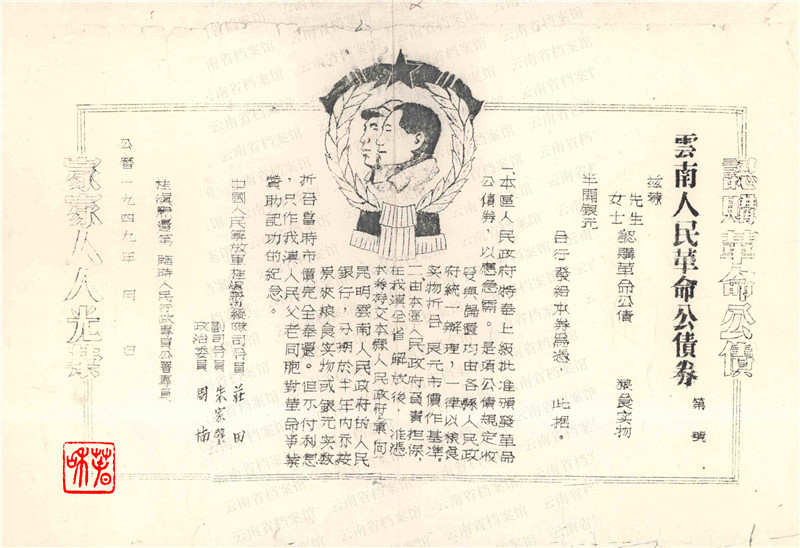 認購革命公債
雲南人民革命公債券 第 號
茲據
先生
女士 認購革命公債 糧食实物
半開銀元
合行發給本券為憑， 此据。
一、本區人民政府特奉上級批准頒發革命
公債券，以應急需。是項公債規定收
發與歸還均由各縣人民政
府統一辦理，一律以糧食
实物折合 艮元市價作基準。
二、由本區人民政府負責担保，
在我滇全省 解放後，准憑
本券持交本縣人民政府彙向
昆明雲南人民政府的人民
銀行，分期於半年内 按
原來糧食实物或銀元实数
折合當時市價完全奉還。但不付利息
，只作我滇人民父老同胞對革命事業
贊助記功的紀念。
中國人民解放軍桂滇黔邊縱隊司令員 莊田
副司令員 朱家璧
政治委員 周楠
桂滇黔邊第 臨時人民行政專員公署專員
公曆一九四九年 月 日
家家人人光榮
云南省档案馆